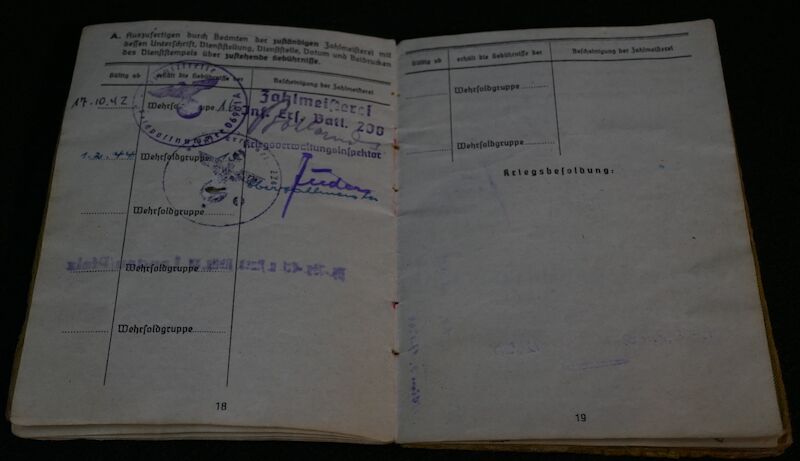 A. Auszufertigen durch Beamten der zuständigen Zahlmeisterei mit
dessen Unterschrift, Dienststellung, Dienststelle, Datum und Beidrucken
des Dienststempels über zustehende Gebührnisse.
Gültig ab
erhält die Gebührnisse der
Bescheinigung der Zahlmeisterei
17.10.42
Wehrsoldgruppe
Zahlmeisterei
Inf. Ers. Batl. 208
Kriegsverwaltungsinspektor
1.2.44
Wehrsoldgruppe
Oberzahlmeister
Wehrsoldgruppe
Wehrsoldgruppe
Wehrsoldgruppe
18
Gültig ab
erhält die Gebührnisse der
Bescheinigung der Zahlmeisterei
Wehrsoldgruppe
Wehrsoldgruppe
Kriegsbesoldung:
19